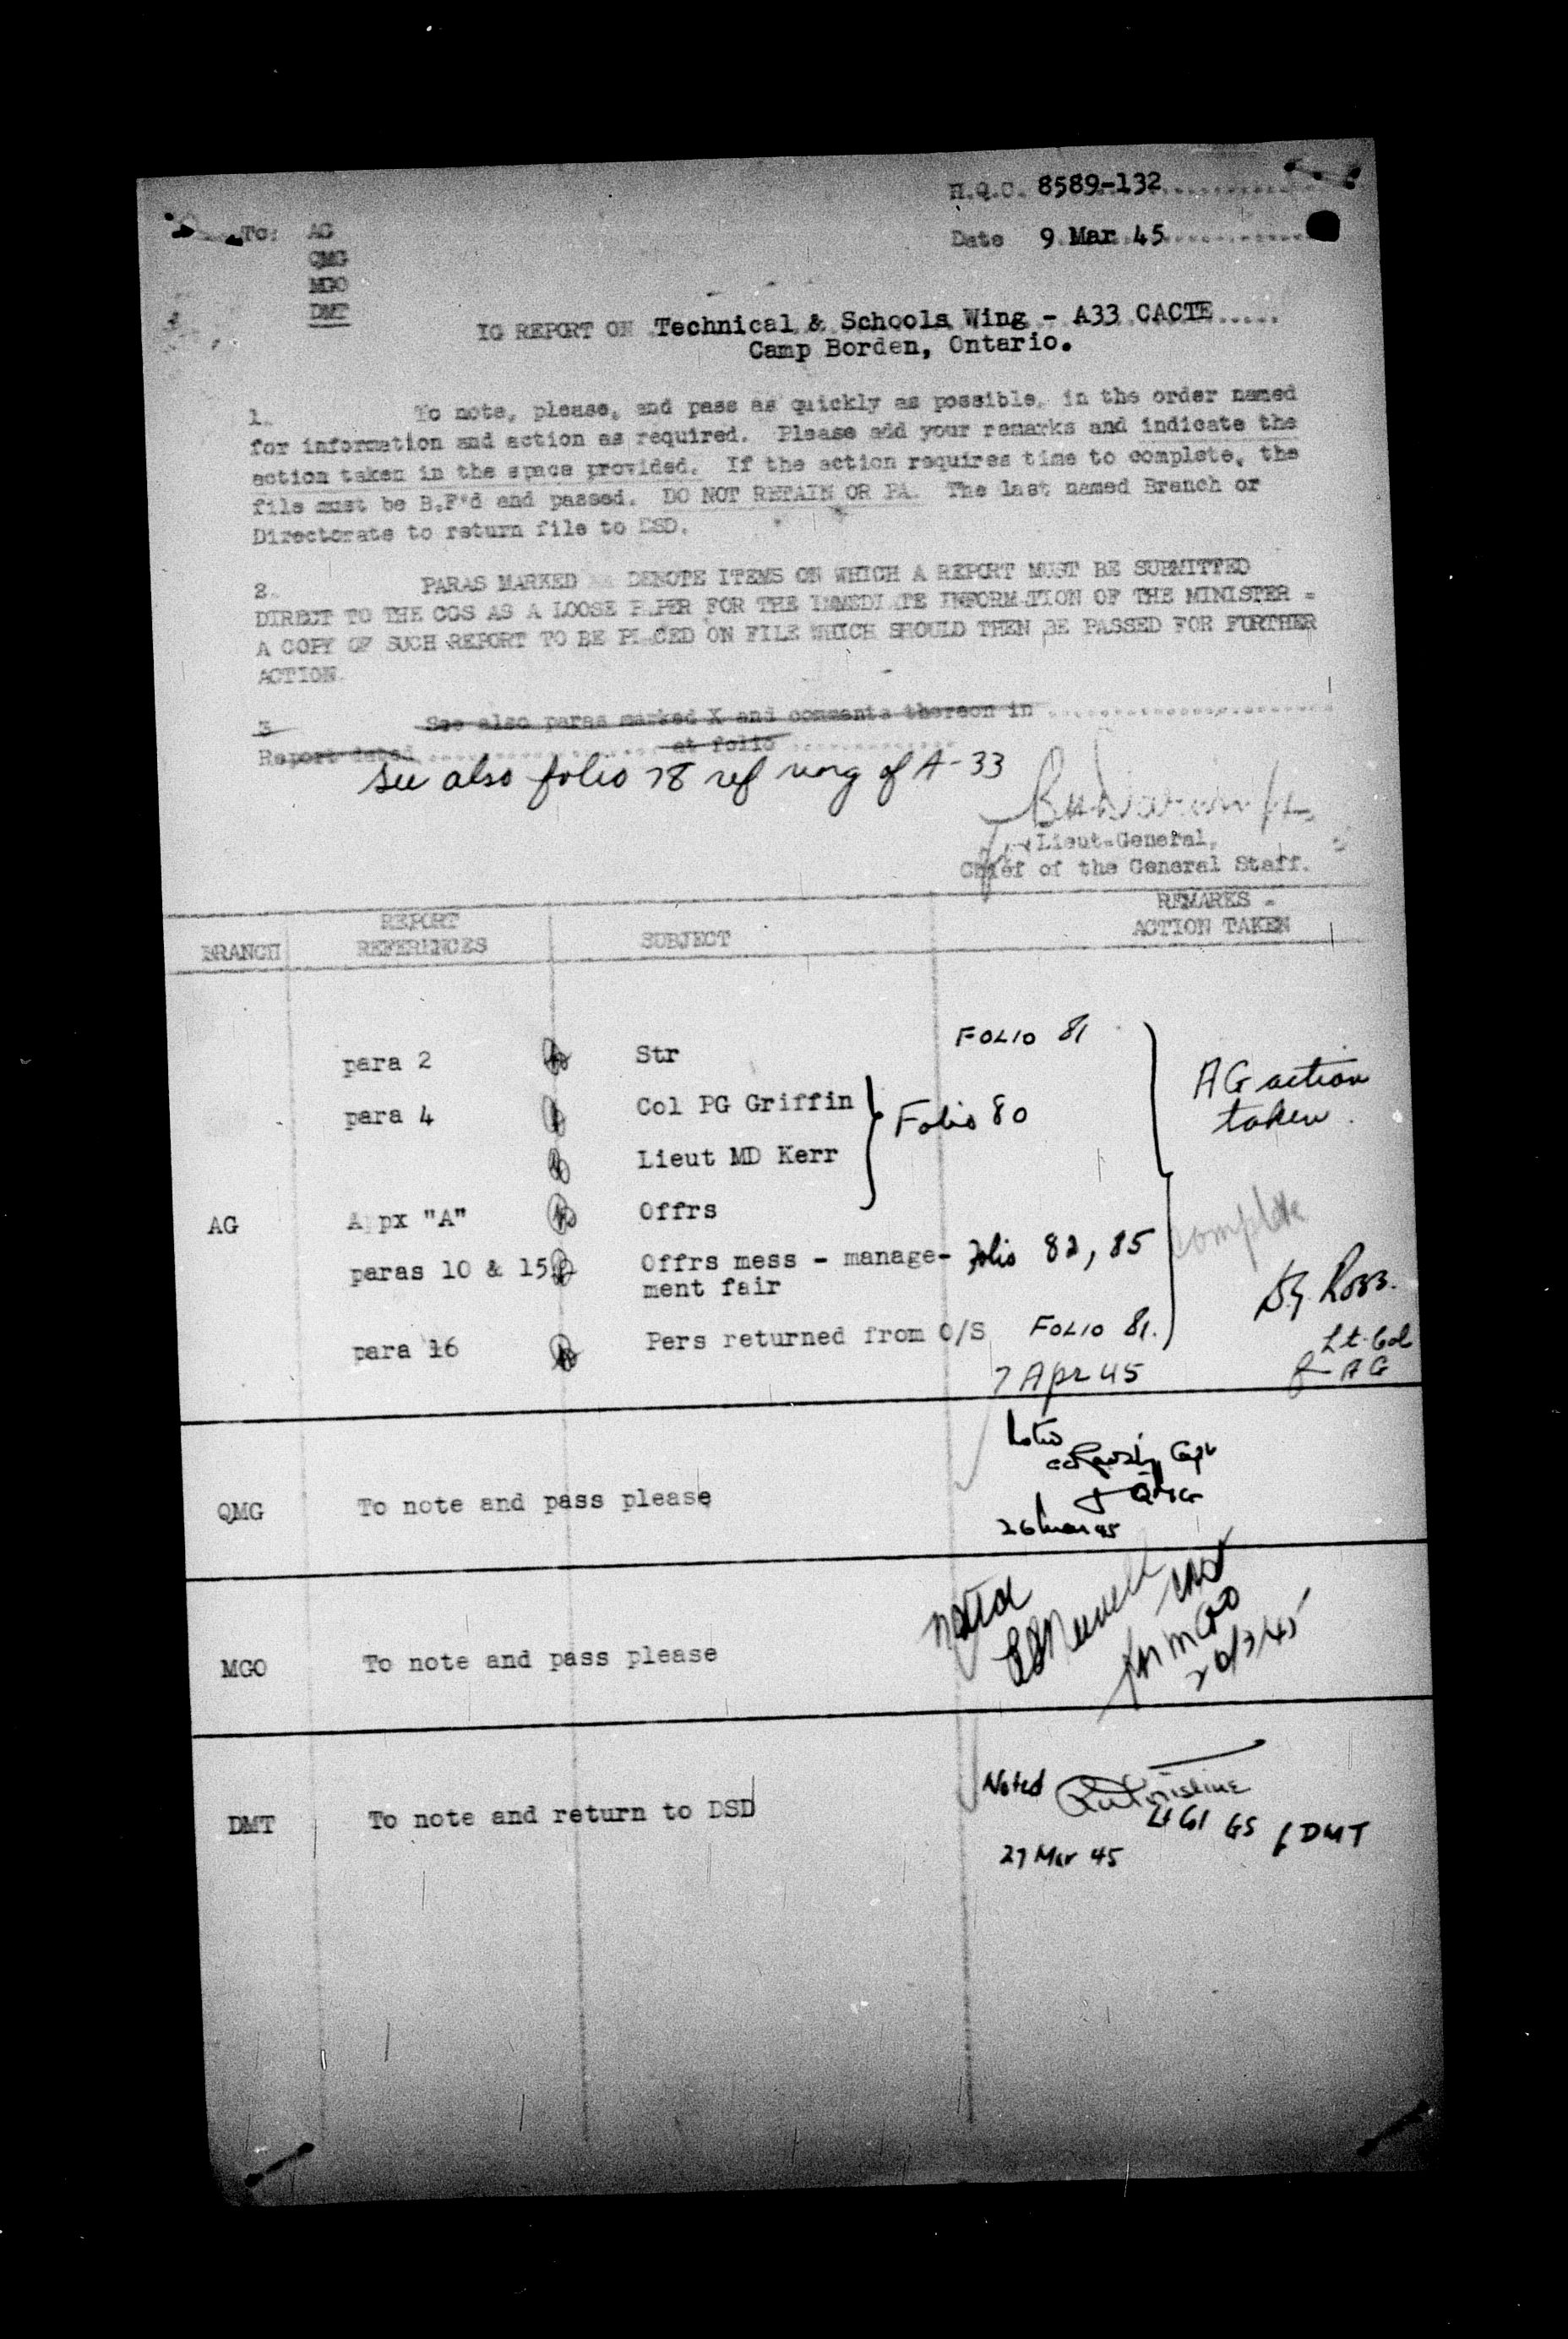 H.Q.C. 8589-132
Date 9 Mar 45
To: AG
QMG
MGO
DMT
IG REPORT ON Technical & Schools Wing - A33 CACTE
Camp Borden, Ontario.
1. To note, please, and pass as quickly as possible, in the order named
for information and action as required. Please add your remarks and indicate the
action taken in the space provided. If the action requires time to complete, the
file must be B.F'd and passed. DO NOT RETAIN OR PA. The last named Branch or
Directorate to return file to DSD.
2. PARAS MARKED DENOTE ITEMS ON WHICH A REPORT MUST BE SUBMITTED
DIRECT TO THE CGS AS A LOOSE PAPER FOR THE IMMEDIATE INFORMATION OF THE MINISTER -
A COPY OF SUCH REPORT TO BE PLACED ON FILE WHICH SHOULD THEN BE PASSED FOR FURTHER
ACTION.
3 See also paras marked X and comments thereon in
Report dated at folio
See also folio 78 ref of A-33
Lieut-General,
Chief of the General Staff.
BRANCH REPORT REFERENCES SUBJECT REMARKS - ACTION TAKEN
para 2 Str FOLIO 81
para 4 Col PG Griffin Folio 80 AG action taken.
Lieut MD Kerr
AG Appx "A" Offrs
complete
paras 10 & 15 Offrs mess - manage- Folio 82, 85
ment fair
Ross.
para 16 Pers returned from O/S FOLIO 81.
Lt-Col
7 Apr 45 f AG
QMG To note and pass please
Capt
f QMG
26 Mar 45
MGO To note and pass please noted
for MGO
20/3/45
DMT To note and return to DSD Noted
Lt Col GS f DMT
27 Mar 45